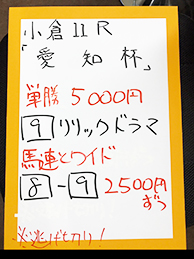 小倉11R
「愛知杯」
単勝 5000円
9 リリックドラマ
馬連とワイド
8-9 2500円
ずつ
※逃げ切り!